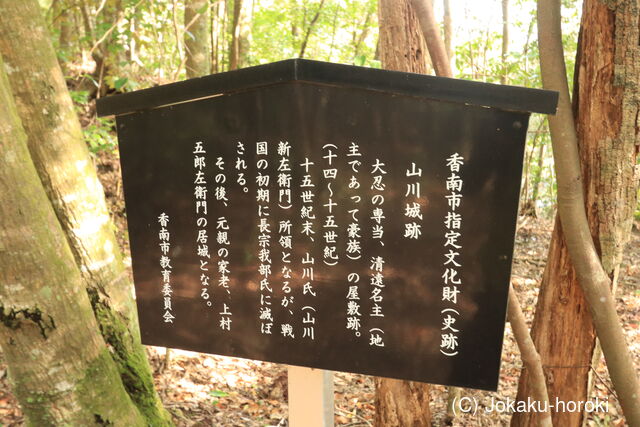 香南市指定文化財(史跡)
山川城跡
大忍の専当、清遠名主(地
主であって豪族)の屋敷跡。
(十四〜十五世紀)
十五世紀末、山川氏(山川
新左衛門)所領となるが、戦
国の初期に長宗我部氏に滅ぼ
される。
その後、元親の家老、上村
五郎左衛門の居城となる。
香南市教育委員会
(C)Jokaku-horoki